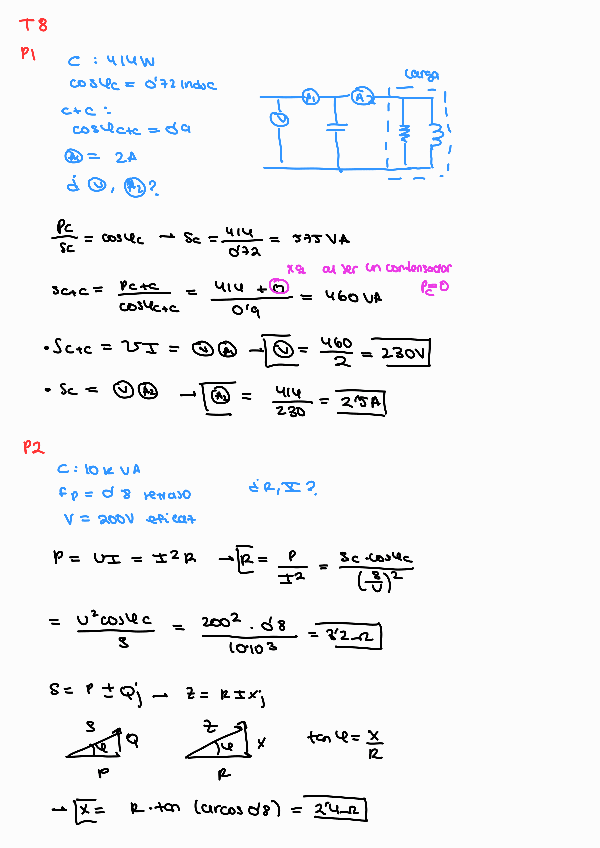 T8
P1
C : 414W
cosφc = 0'72 induc
c+c :
cosφc+c = 0'9
A1 = 2A
¿ V, A2 ?
carga
A1 A2
V
Pc/Sc = cosφc → Sc = 414/0'72 = 575 VA
xq al ser un condensador
Pc=0
Sc+c = Pc+c/cosφc+c = 414 + 0/0'9 = 460 VA
• Sc+c = VI = V A → V = 460/2 = 230V
• Sc = V A2 → A2 = 414/230 = 2'5A
P2
C : 10 k VA
fp = 0'8 retraso
¿R, X ?
V = 200V eficaz
P = UI = I²R → R = P/I² = Sc·cosφc/(S/U)²
= U²cosφc/S = 200² · 0'8/10·10³ = 3'2 Ω
S = P ± Qj → Z = R ± Xj
S Q φ P
Z X φ R
tan φ = X/R
→ X = R · tan (arcos 0'8) = 2'4 Ω